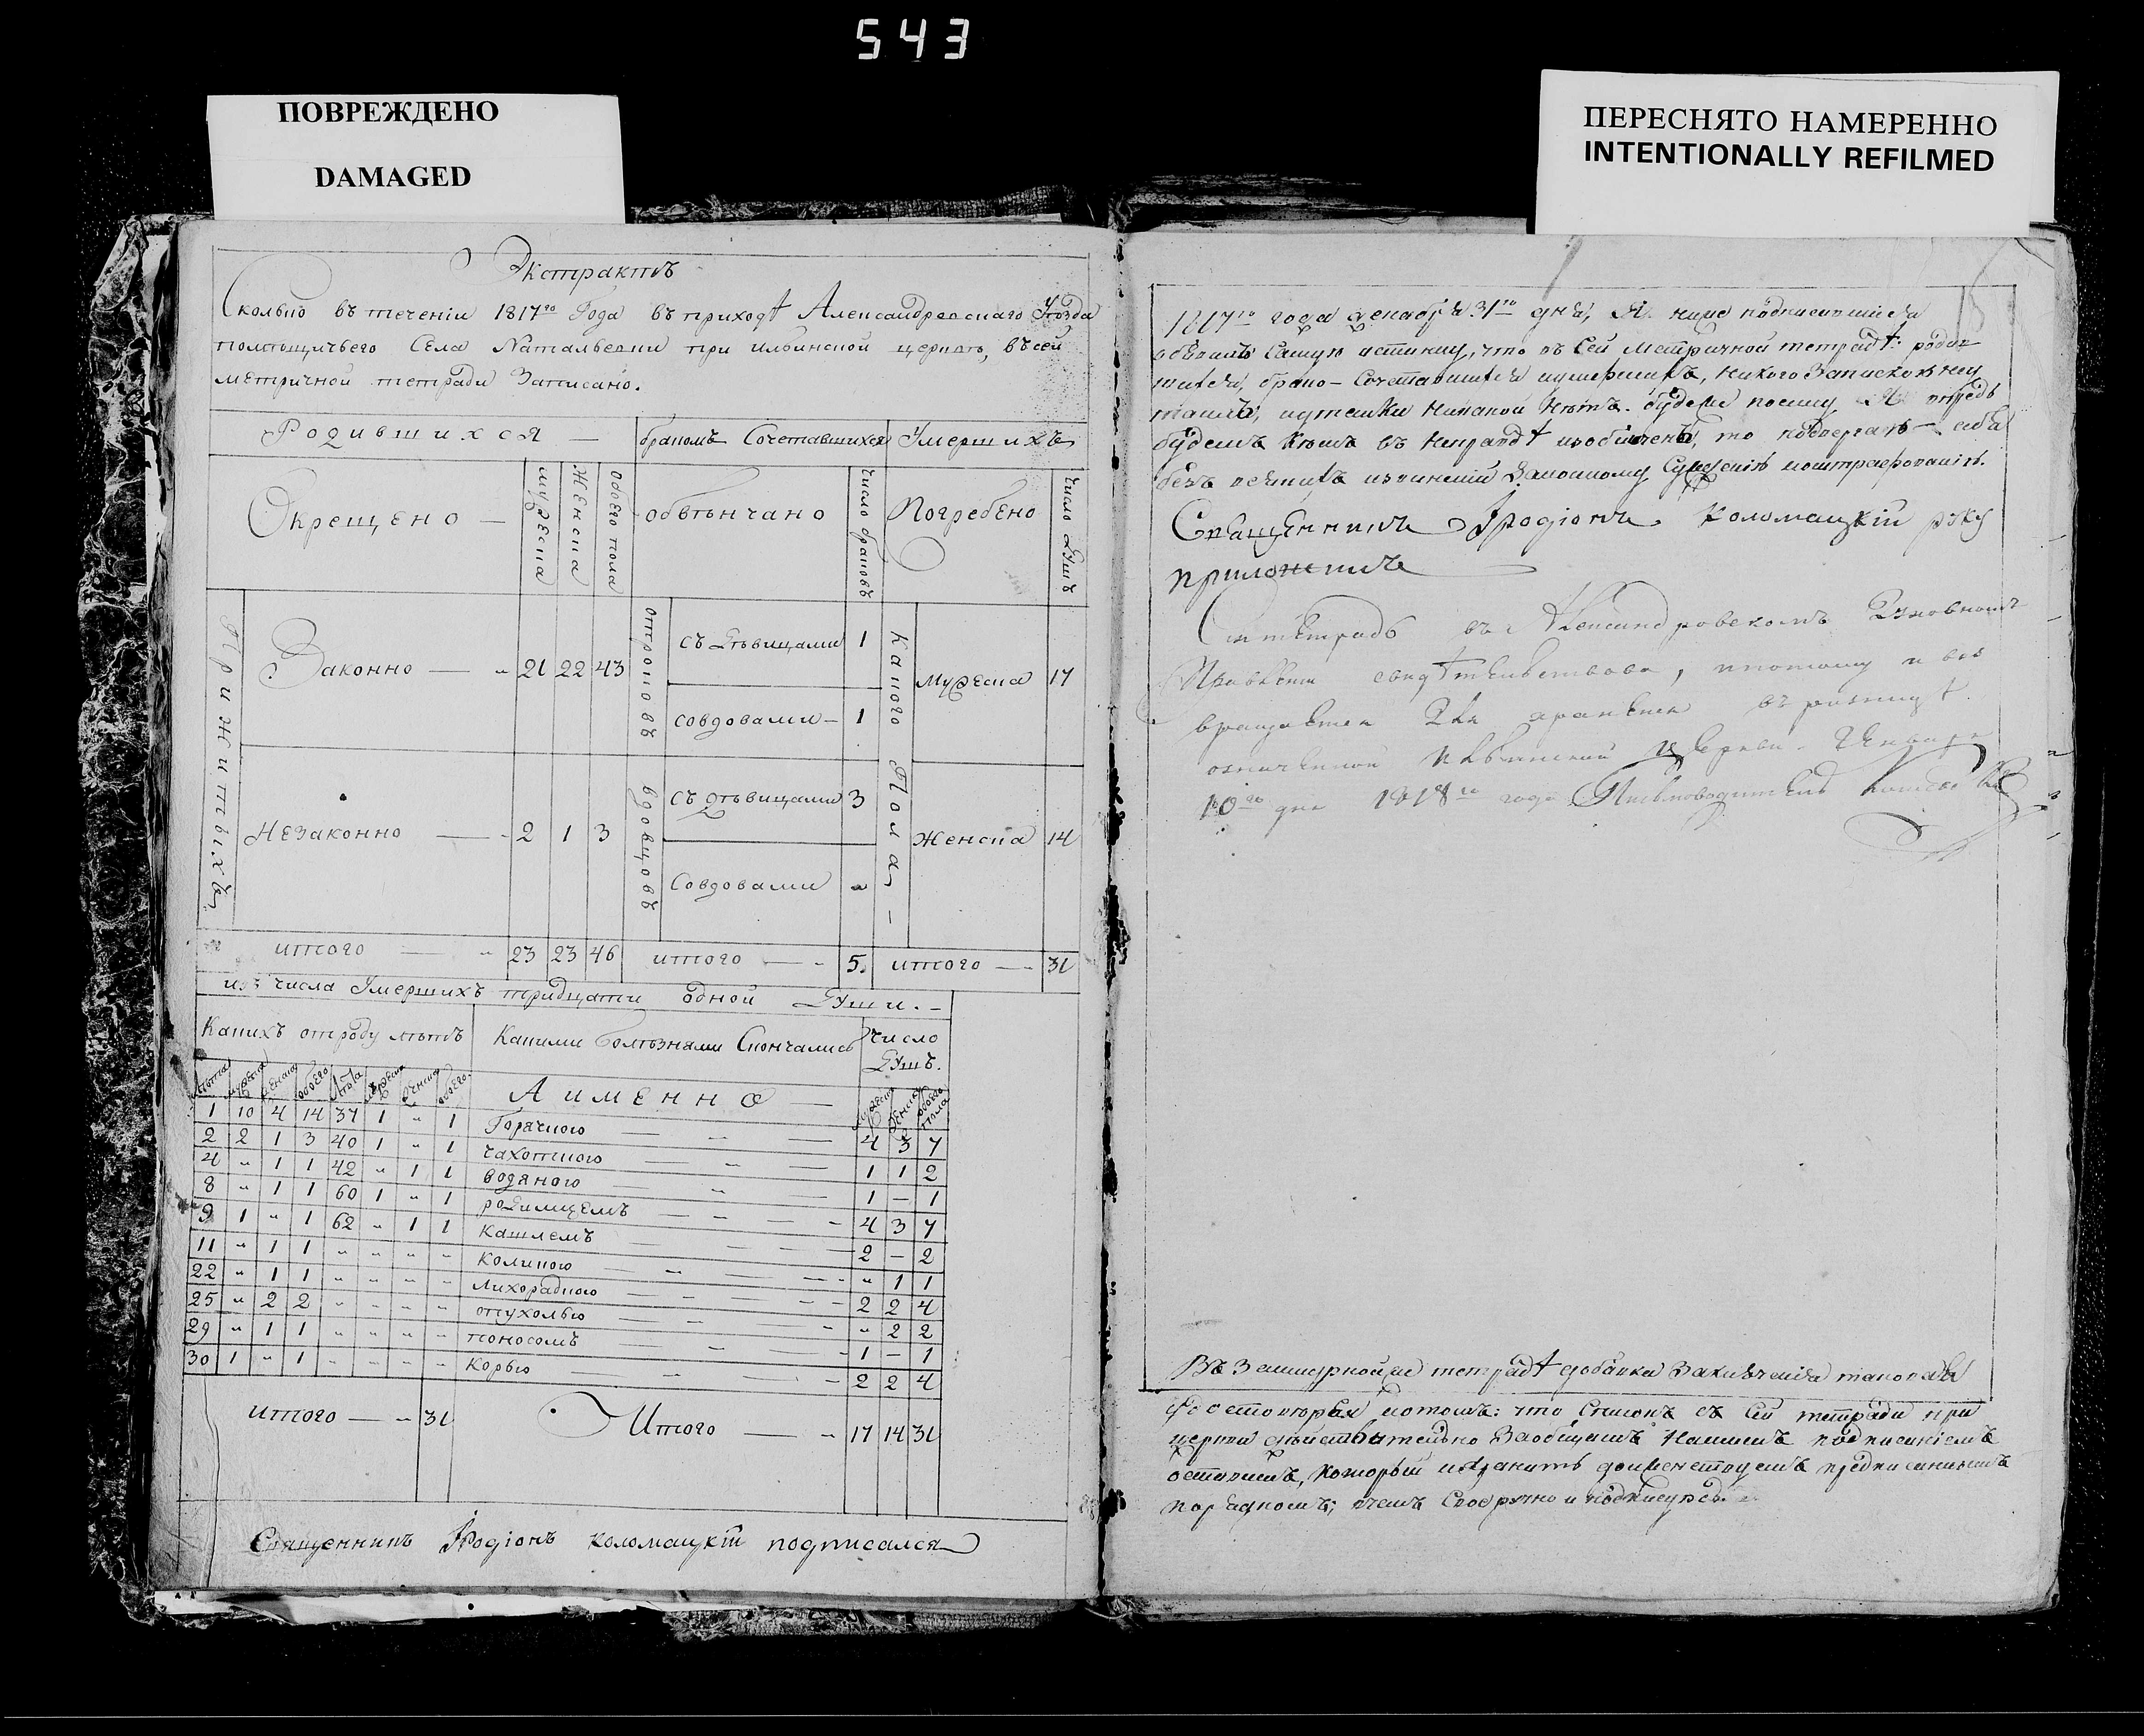 543
ПОВРЕЖДЕНО
DAMAGED
ПЕРЕСНЯТО НАМЕРЕННО
INTENTIONALLY REFILMED
Экстрактъ
Сколько въ теченіи 1817го Года въ приходѣ Александровскаго Уѣзда
помѣщичьего Села Натальевки при ильинской церквѣ, въ сей
метричной тетради Записано.
Родившихся — бракомъ Сочетавшихся Умершихъ
Окрещено — мужеска женска обоего пола обвѣнчано число браковъ Погребено число душъ
Прижитыхъ
Законно — „ 21 22 43 отроковъ съ дѣвицами 1 Какого Пола — мужеска 17
совдовами — 1
Незаконно — „ 2 1 3 вдовцовъ съ дѣвицами 3 женска 14
совдовами „
итого — „ 23 23 46 итого — „ 5. итого — „ 31
изъ числа Умершихъ тридцати одной души. —
Какихъ отроду лѣтъ Какими болѣзнами Скончались Число душъ.
лѣта мужеска женска обоего лѣта мужеска женска обоего А именно — мужеска женска обоего пола
1 10 4 14 37 1 „ 1 Горячкою 4 3 7
2 2 1 3 40 1 „ 1 чахоткою 1 1 2
4 „ 1 1 42 „ 1 1 водяною 1 — 1
8 „ 1 1 60 1 „ 1 родимцемъ 4 3 7
9 1 „ 1 62 „ 1 1 кашлемъ 2 — 2
11 „ 1 1 „ „ „ „ коликою „ 1 1
22 „ 1 1 „ „ „ „ лихорадкою 2 2 4
25 „ 2 2 „ „ „ „ опухолью „ 2 2
29 „ 1 1 „ „ „ „ поносомъ 1 — 1
30 1 „ 1 „ „ „ „ Корью 2 2 4
итого — „ 31 Итого — „ 17 14 31
Священникъ Іродіонъ Коломацкій подписался
1817го года декабря 31го дня, Я ниже подписавшійся
самую истинну, что въ Сей метричной тетрадѣ родив
шихся, брако-Сочетавшихся и умершихъ, никого Запискою не у
таилъ, и никакой нѣтъ. буде же посему Я впредь
будемъ кѣмъ въ неправдѣ изобличенъ, то себя
безъ всякихъ Законному Сужденію и штрафованію.
Священникъ Іродіонъ Коломацкій руку
приложилъ
Сія тетрадь въ Александровскомъ Духовномъ
Правленіи свидѣтельствована, и потому и воз
вращается для храненія въ ризницѣ
означенной Ильинской Церкви. Генваря
10го дня 1818го года Письмоводитель
что Списокъ съ Сей тетради при
церкви дѣйствительно За общимъ Нашимъ подписаніемъ